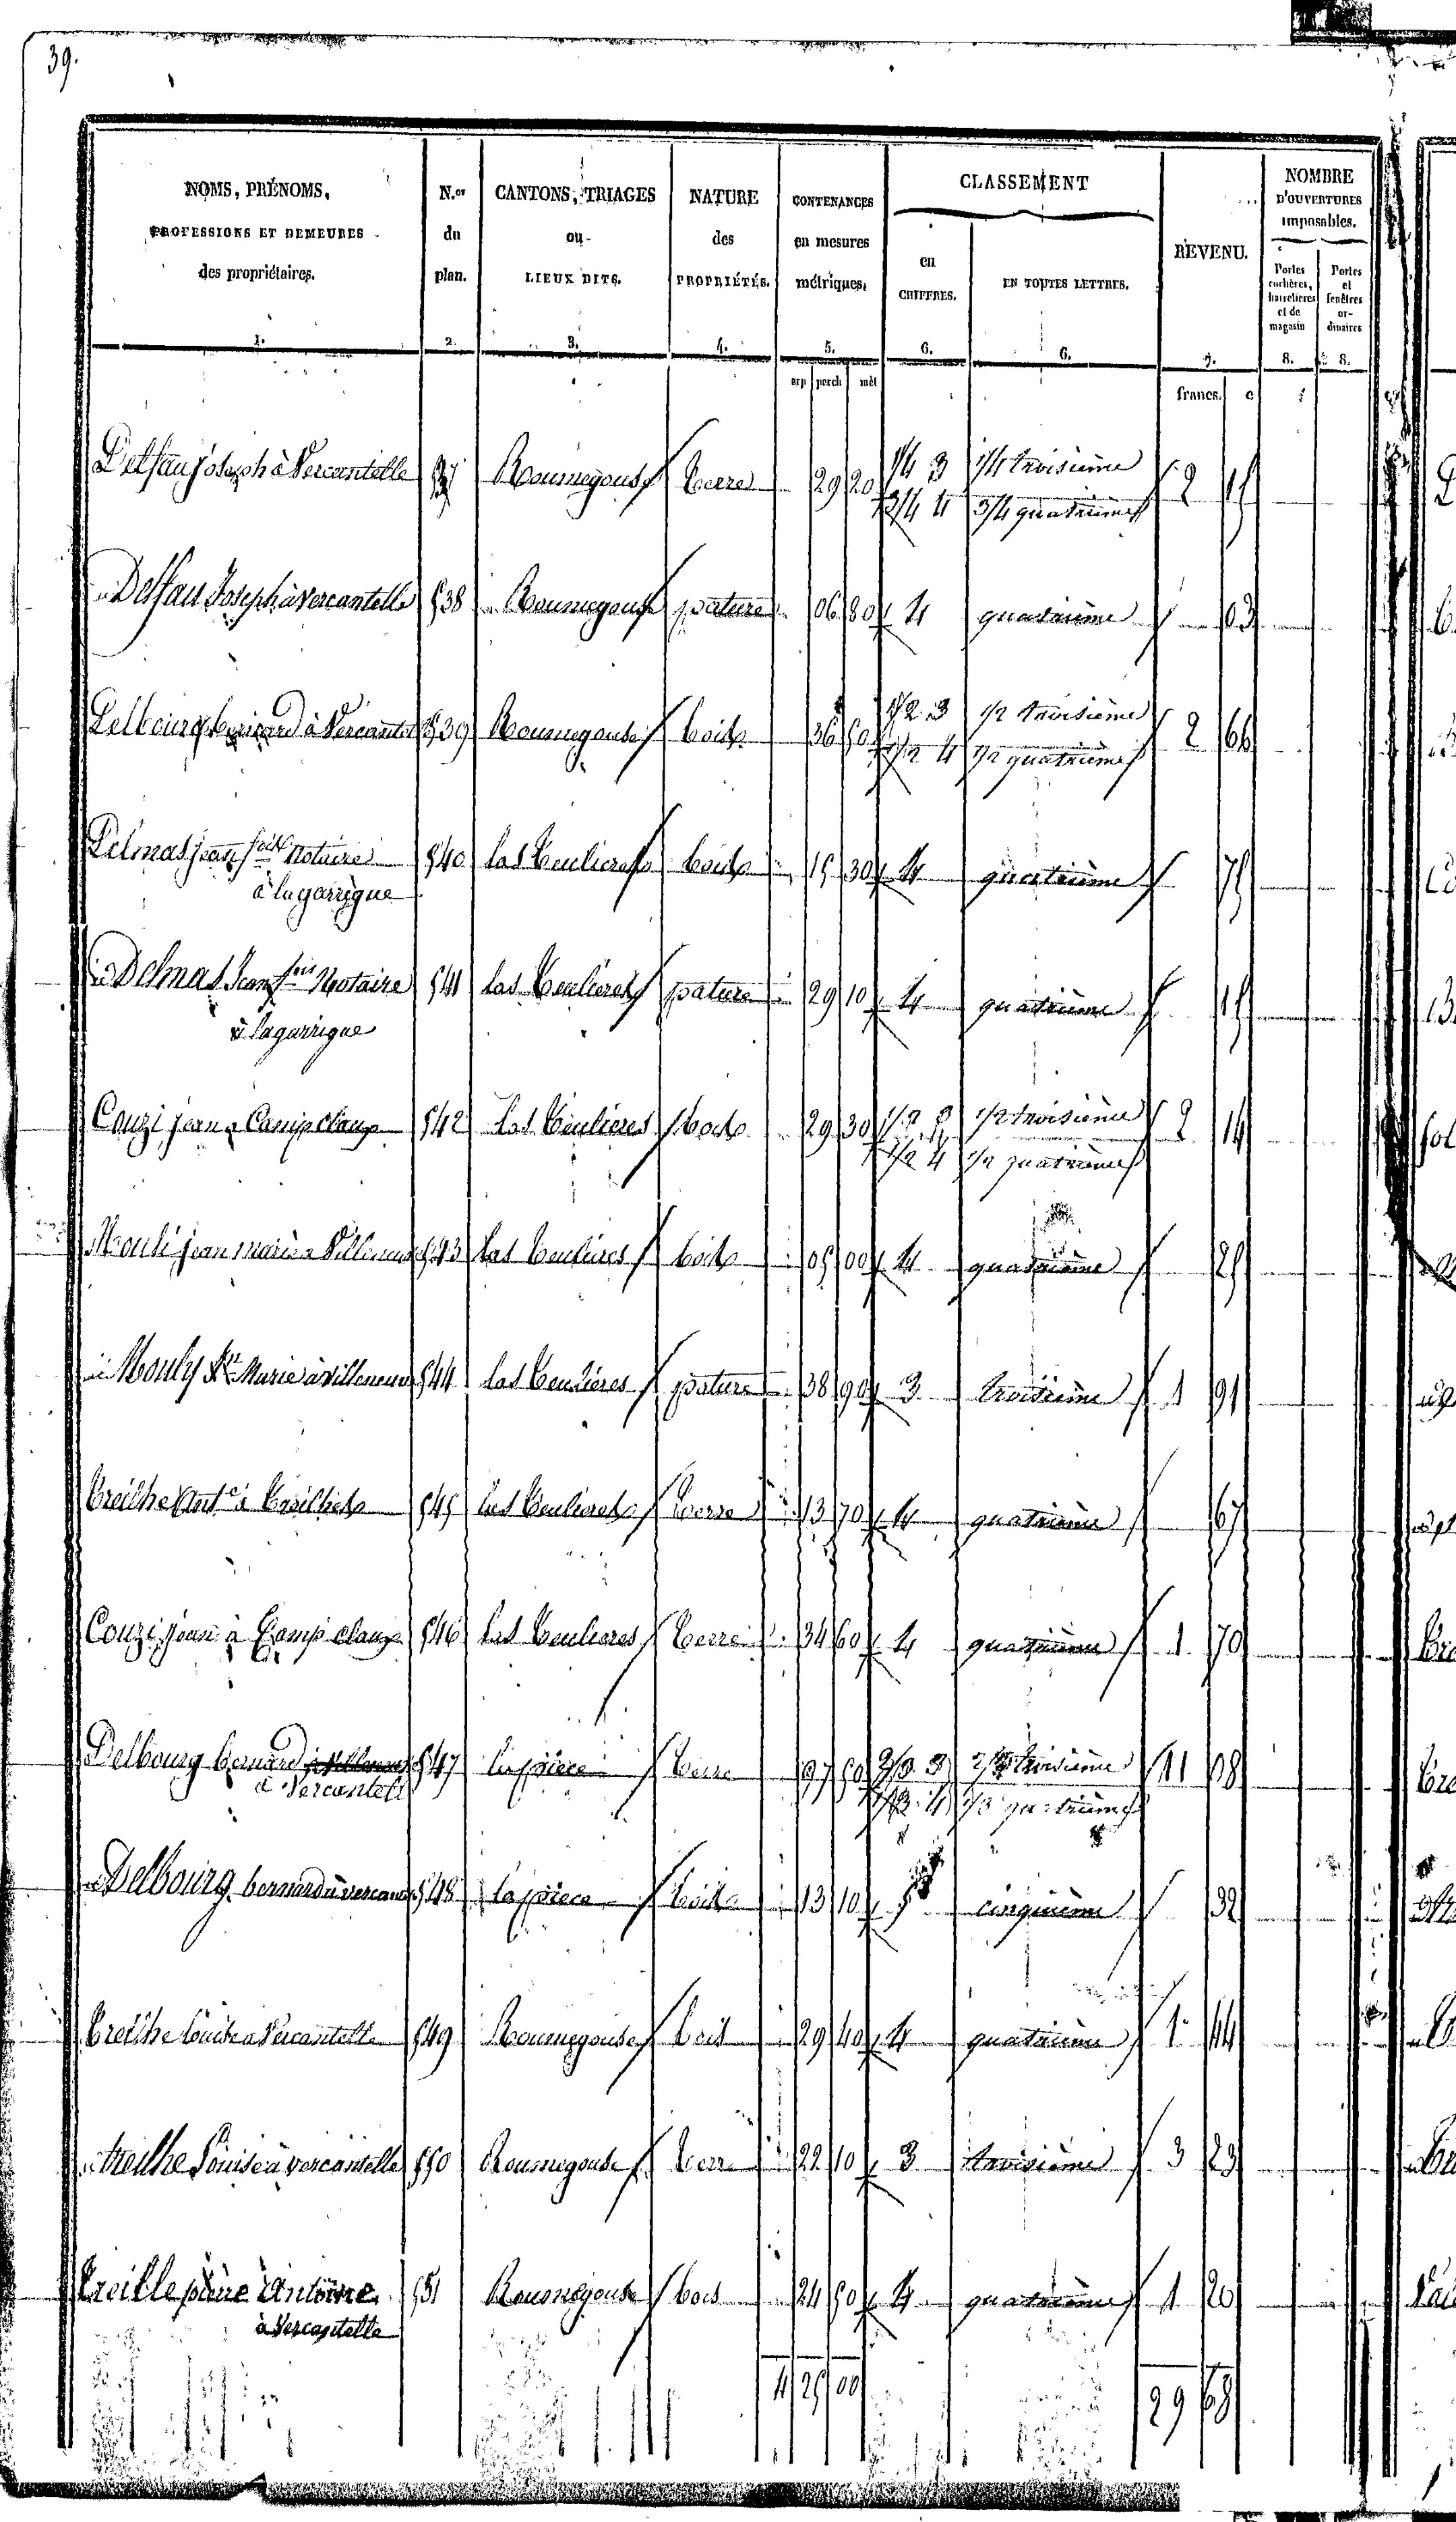 39.
NOMS, PRÉNOMS,
PROFESSIONS ET DEMEURES
des propriétaires.
N.os
du
plan.
CANTONS, TRIAGES
ou
LIEUX DITS.
NATURE
des
PROPRIÉTÉS.
CONTENANCES
en mesures
métriques.
CLASSEMENT
en
CHIFFRES.
EN TOUTES LETTRES.
REVENU.
NOMBRE
D'OUVERTURES
imposables.
Portes
cochères,
et de
magasin
Portes
et
fenêtres
or-
dinaires
1. 2. 3. 4. 5. 6. 6. 7. 8. 8.
arp perch mèt francs. c
Delfau joseph à Vercantelle Roumegouse terre 29 20 1/4 3 1/4 troisième 2 15
3/4 4 3/4 quatrième
Delfau Joseph à Vercantelle 538 Roumegouse pature 06 80 4 quatrième 03
Delbourg bernard à Vercantel 539 Roumegouse bois 36 50 1/2 3 1/2 troisième 2 66
1/2 4 1/2 quatrième
Delmas jean Notaire 540 las teulieres bois 15 30 4 quatrième 75
à lagarrigue
Delmas Jean fois Notaire 541 las teulieres pature 29 10 4 quatrième 15
à lagarrigue
Couzi jean a Camp claux 542 las teulieres bois 29 30 1/2 3 1/2 troisième 2 14
1/2 4 1/2 quatrième
Mouli jean marie a Villeneuve 543 las teulieres bois 05 00 4 quatrième 25
Mouly Marie à Villeneuve 544 las teulieres pature 38 90 3 troisième 1 91
treilhe 545 las teulieres terre 13 70 4 quatrième 67
Couzi jean à Camp claux 546 las teulieres terre 34 60 4 quatrième 1 70
Delbourg bernard 547 la pièce terre 97 50 2/3 3 2/3 troisième 11 08
à Vercantell 1/3 4 1/3 quatrième
Delbourg bernard à vercant 548 la pièce bois 13 10 5 cinquième 32
treilhe louise a Vercantelle 549 Roumegouse bois 29 40 4 quatrième 1 44
treilhe Louise à vercantelle 550 Roumegouse terre 22 10 3 troisième 3 23
treille père Antoine 551 Roumegouse bois 24 50 4 quatrième 1 20
à Vercantelle
4 25 00 29 68